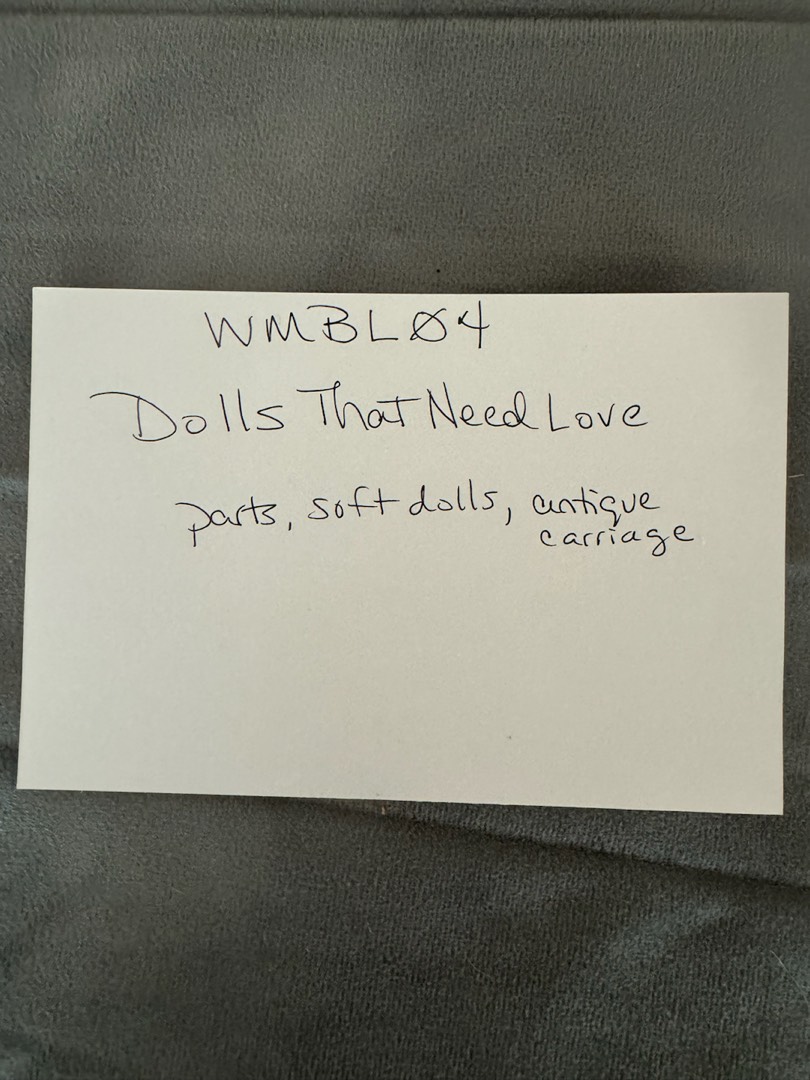 WMBLØ4
Dolls That Need Love
parts, soft dolls, antique
carriage